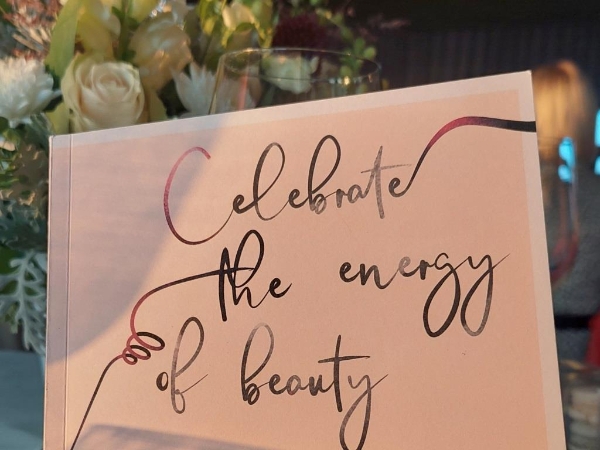 Celebrate
the energy
of beauty